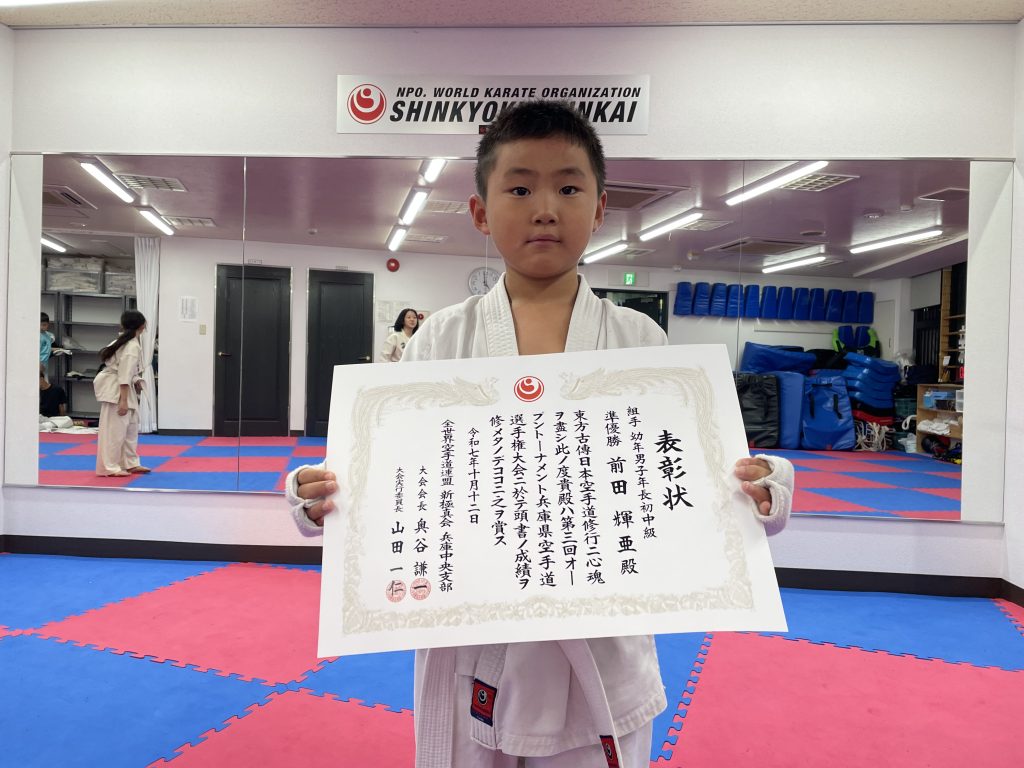 NPO. WORLD KARATE ORGANIZATION
表彰状
組手 幼年男子年長初中級
準優勝 前田 輝亜殿
東方古傳日本空手道修行二心魂
ヲ盡シ此ノ度貴殿ハ第三回オー
プントーナメント兵庫県空手道
選手権大会ニ於テ頭書ノ成績ヲ
修メタノデココニ之ヲ賞ス
令和七年十月十二日
全世界空手道連盟 新極真会 兵庫中央支部
大会会長 奥谷 謙一
大会実行委員長 山田 一仁